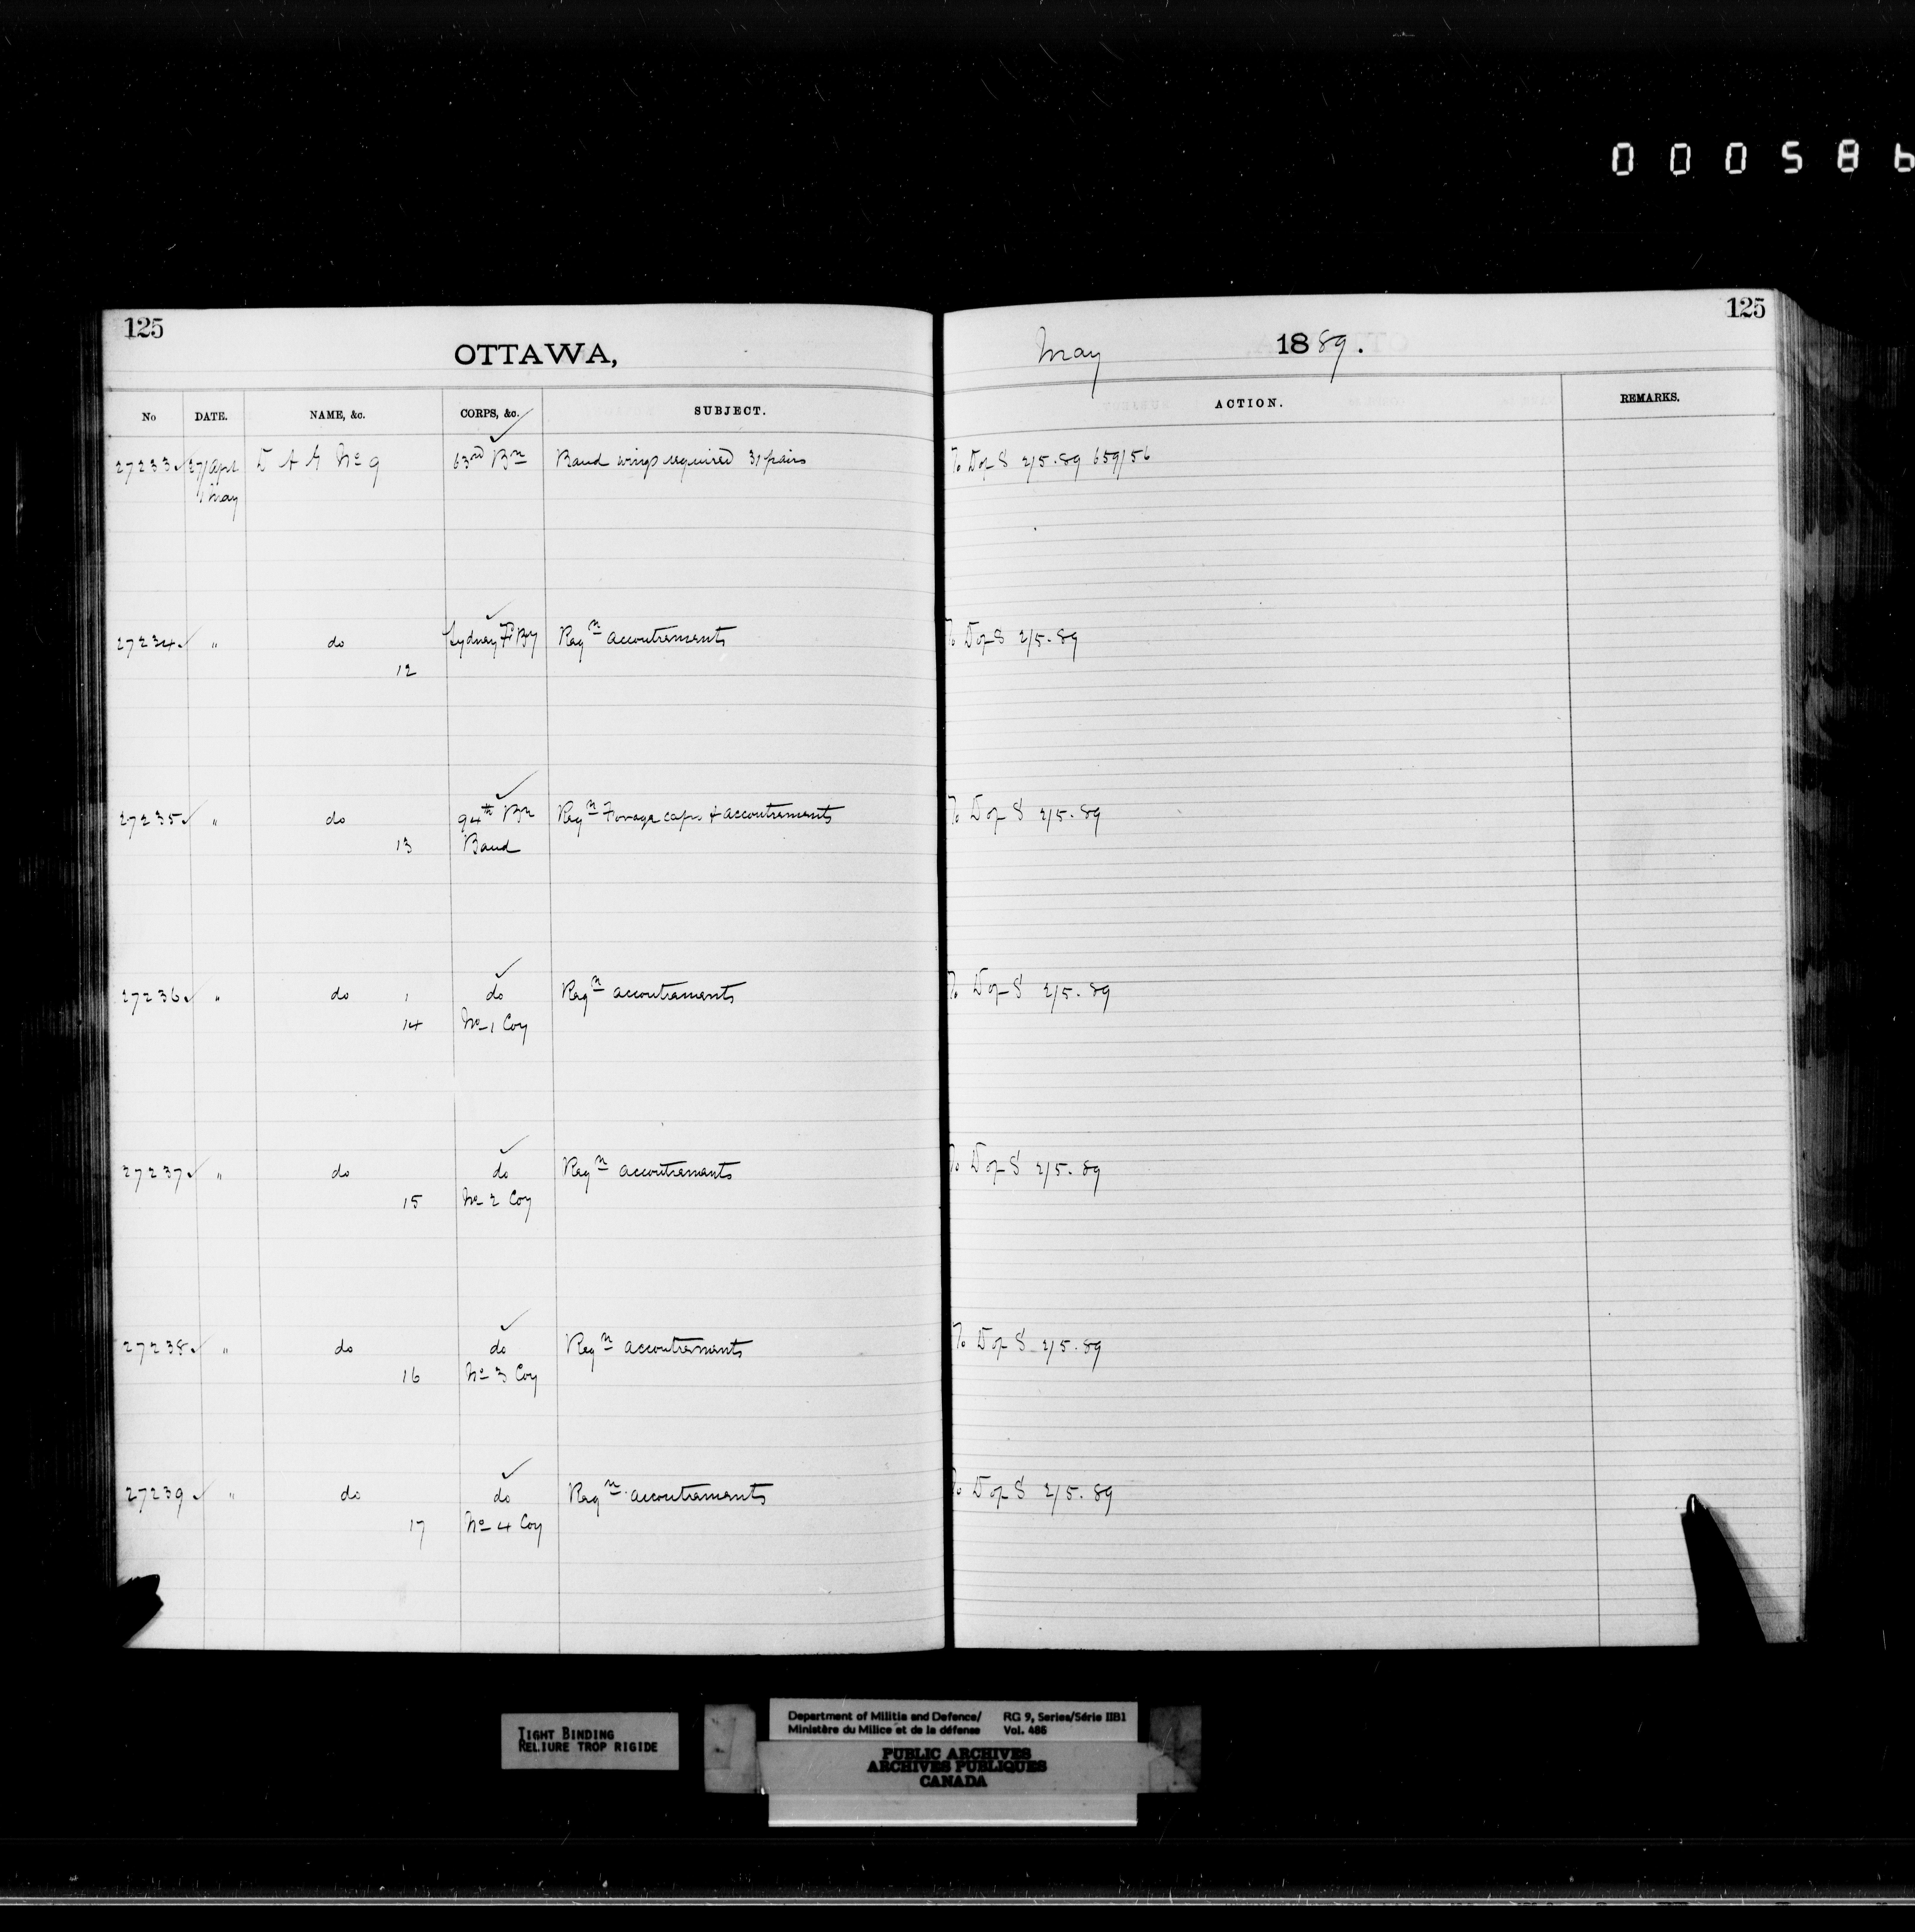 000586
125
OTTAWA,
May 1889.
125
No DATE. NAME, &c. CORPS, &c. SUBJECT. ACTION. REMARKS.
27233 27/Apl D A G No 9 63rd Bn Band wings required 31 pairs To D of S 2/5.89 659/56
1 May
27234 " do Sydney Fd By Reqn accoutrements To D of S 2/5.89
12
27235 " do 94th Bn Reqn Forage caps & accoutrements To D of S 2/5.89
13 Band
27236 " do do Reqn accoutrements To D of S 2/5.89
14 No 1 Coy
27237 " do do Reqn accoutrements To D of S 2/5.89
15 No 2 Coy
27238 " do do Reqn accoutrements To D of S 2/5.89
16 No 3 Coy
27239 " do do Reqn accoutrements To D of S 2/5.89
17 No 4 Coy
TIGHT BINDING
RELIURE TROP RIGIDE
Department of Militia and Defence/ RG 9, Series/Série IIB1
Ministère du Milice et de la défense Vol. 486
PUBLIC ARCHIVES
ARCHIVES PUBLIQUES
CANADA